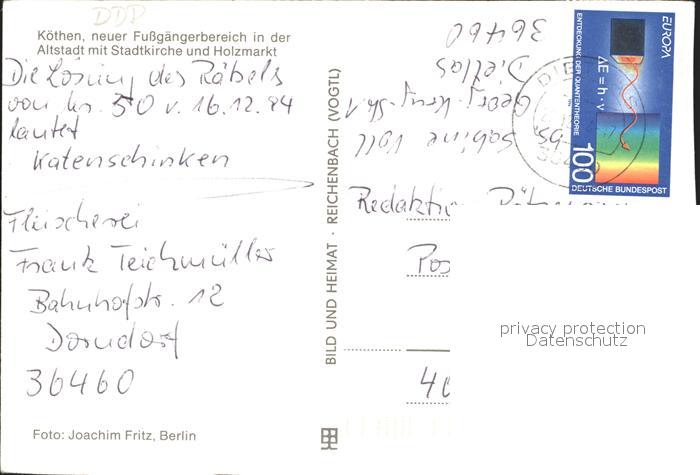 DDD
Köthen, neuer Fußgängerbereich in der
Altstadt mit Stadtkirche und Holzmarkt
Die Lösung des Rätsels
von Nr. 50 v. 16.12.94
lautet
Katenschinken
Fleischerei
Frank Teichmüller
Bahnhofstr. 12
Dorndorf
36460
Foto: Joachim Fritz, Berlin
BILD UND HEIMAT · REICHENBACH (VOGTL)
Sabine Voll
Dietlas
36460
EUROPA
ENTDECKUNG DER QUANTENTHEORIE
ΔE = h · ν
100
DEUTSCHE BUNDESPOST
DIE
Redaktion
Pos
40
privacy protection
Datenschutz